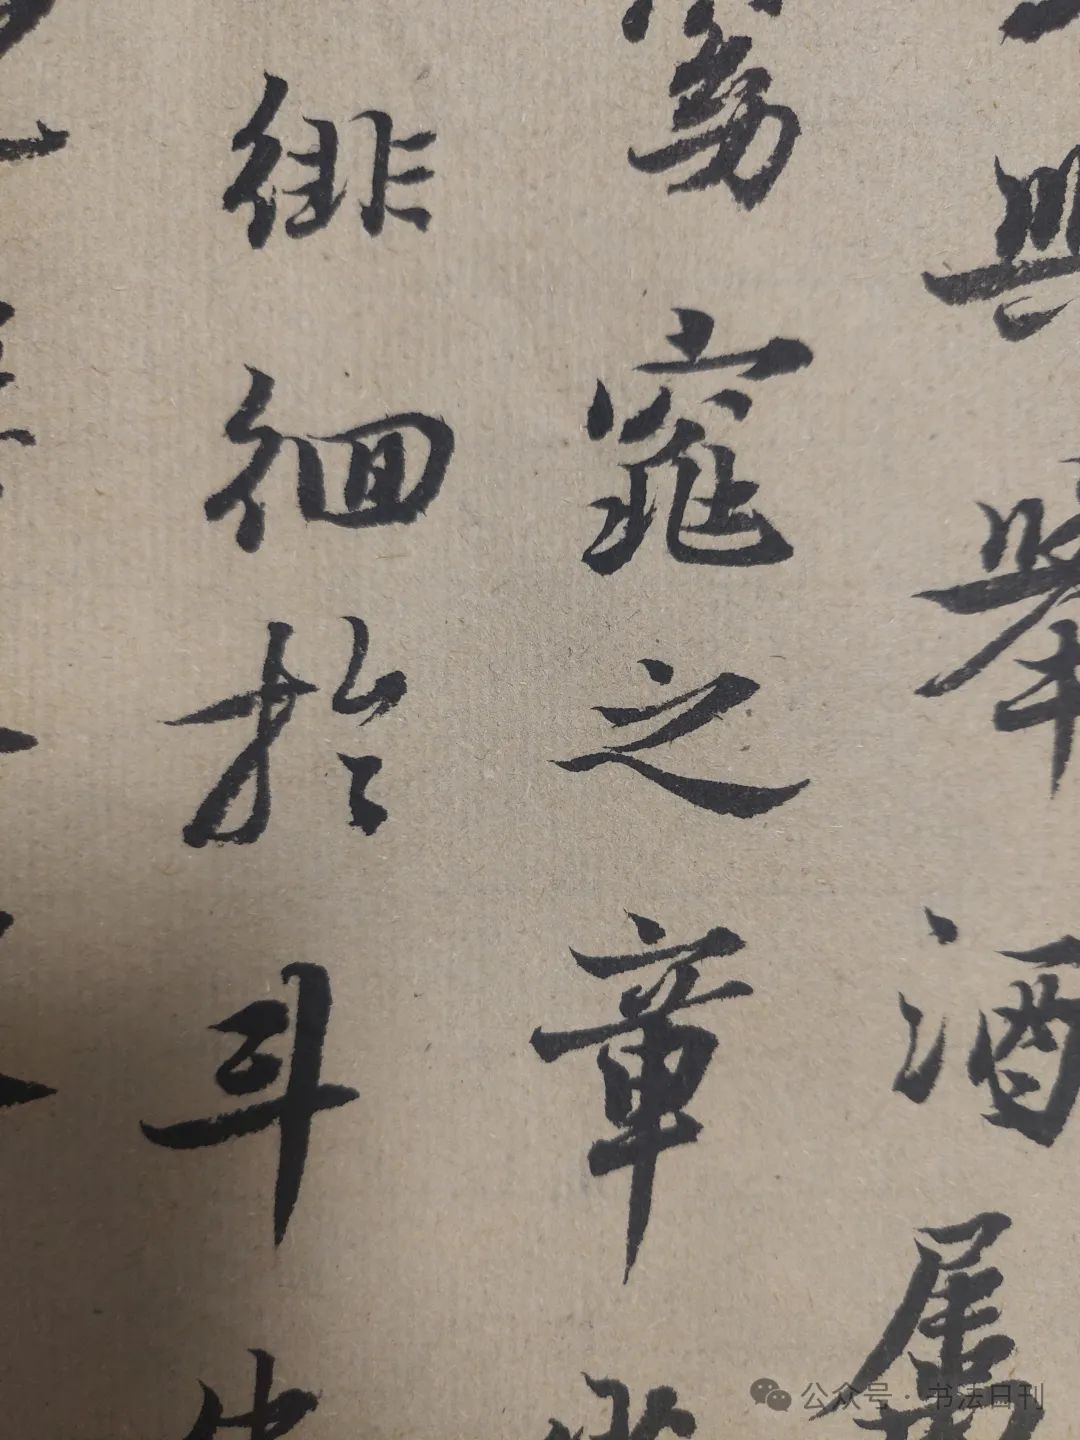 興舉酒屬
窈窕之章
徘徊於斗
公众号 · 书法日刊